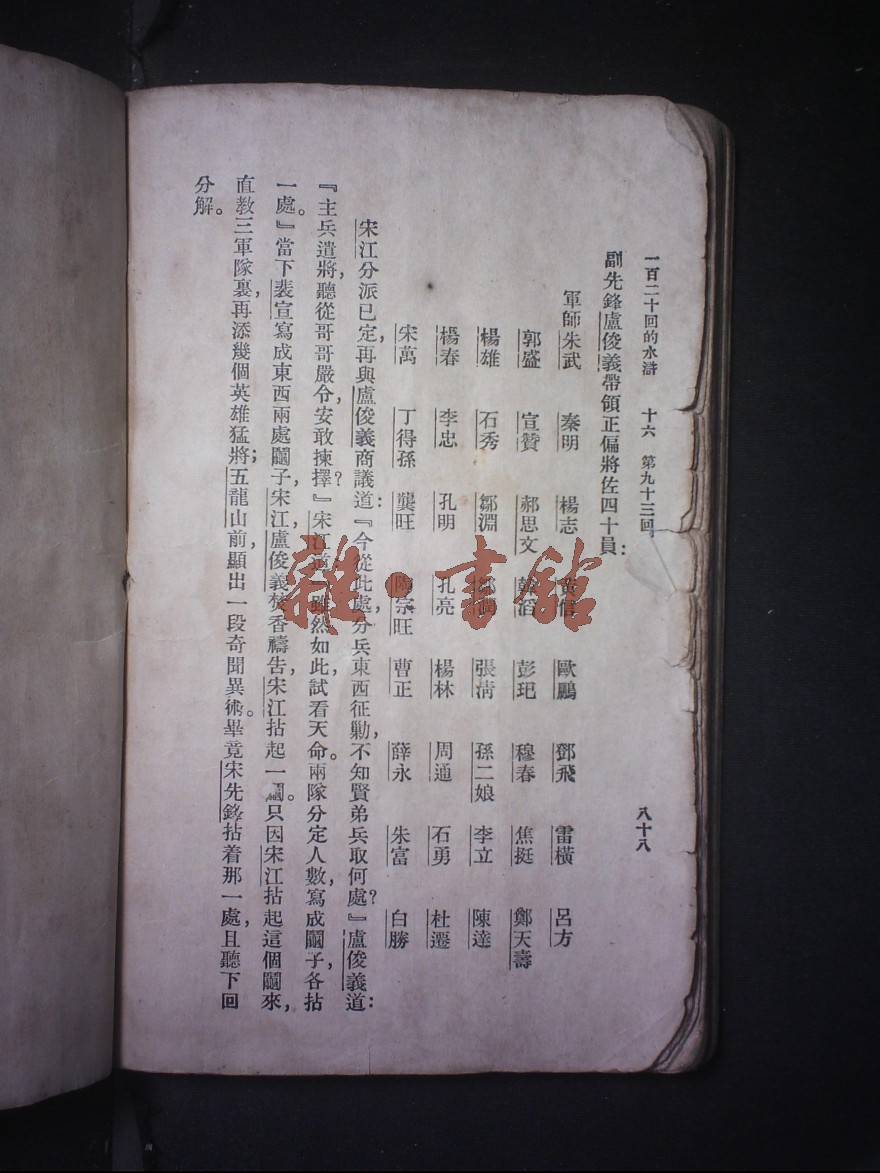 一百二十回的水滸 十六 第九十三回 八十八
副先鋒盧俊義帶領正偏將佐四十員：
軍師朱武 秦明 楊志 黃信 歐鵬 鄧飛 雷橫 呂方
郭盛 宣贊 郝思文 韓滔 彭玘 穆春 焦挺 鄭天壽
楊雄 石秀 鄒淵 鄒潤 張淸 孫二娘 李立 陳達
楊春 李忠 孔明 孔亮 楊林 周通 石勇 杜遷
宋萬 丁得孫 龔旺 陶宗旺 曹正 薛永 朱富 白勝
宋江分派已定，再與盧俊義商議道：『今從此處分兵東西征勦，不知賢弟兵取何處？』盧俊義道：
『主兵遣將，聽從哥哥嚴令，安敢揀擇？』宋江道『雖然如此，試看天命。兩隊分定人數，寫成鬮子，各拈
一處。』當下裴宣寫成東西兩處鬮子，宋江，盧俊義焚香禱告，宋江拈起一鬮。只因宋江拈起這個鬮來，
直教三軍隊裏，再添幾個英雄猛將；五龍山前，顯出一段奇聞異術。畢竟宋先鋒拈着那一處，且聽下回
分解。
雜·書館